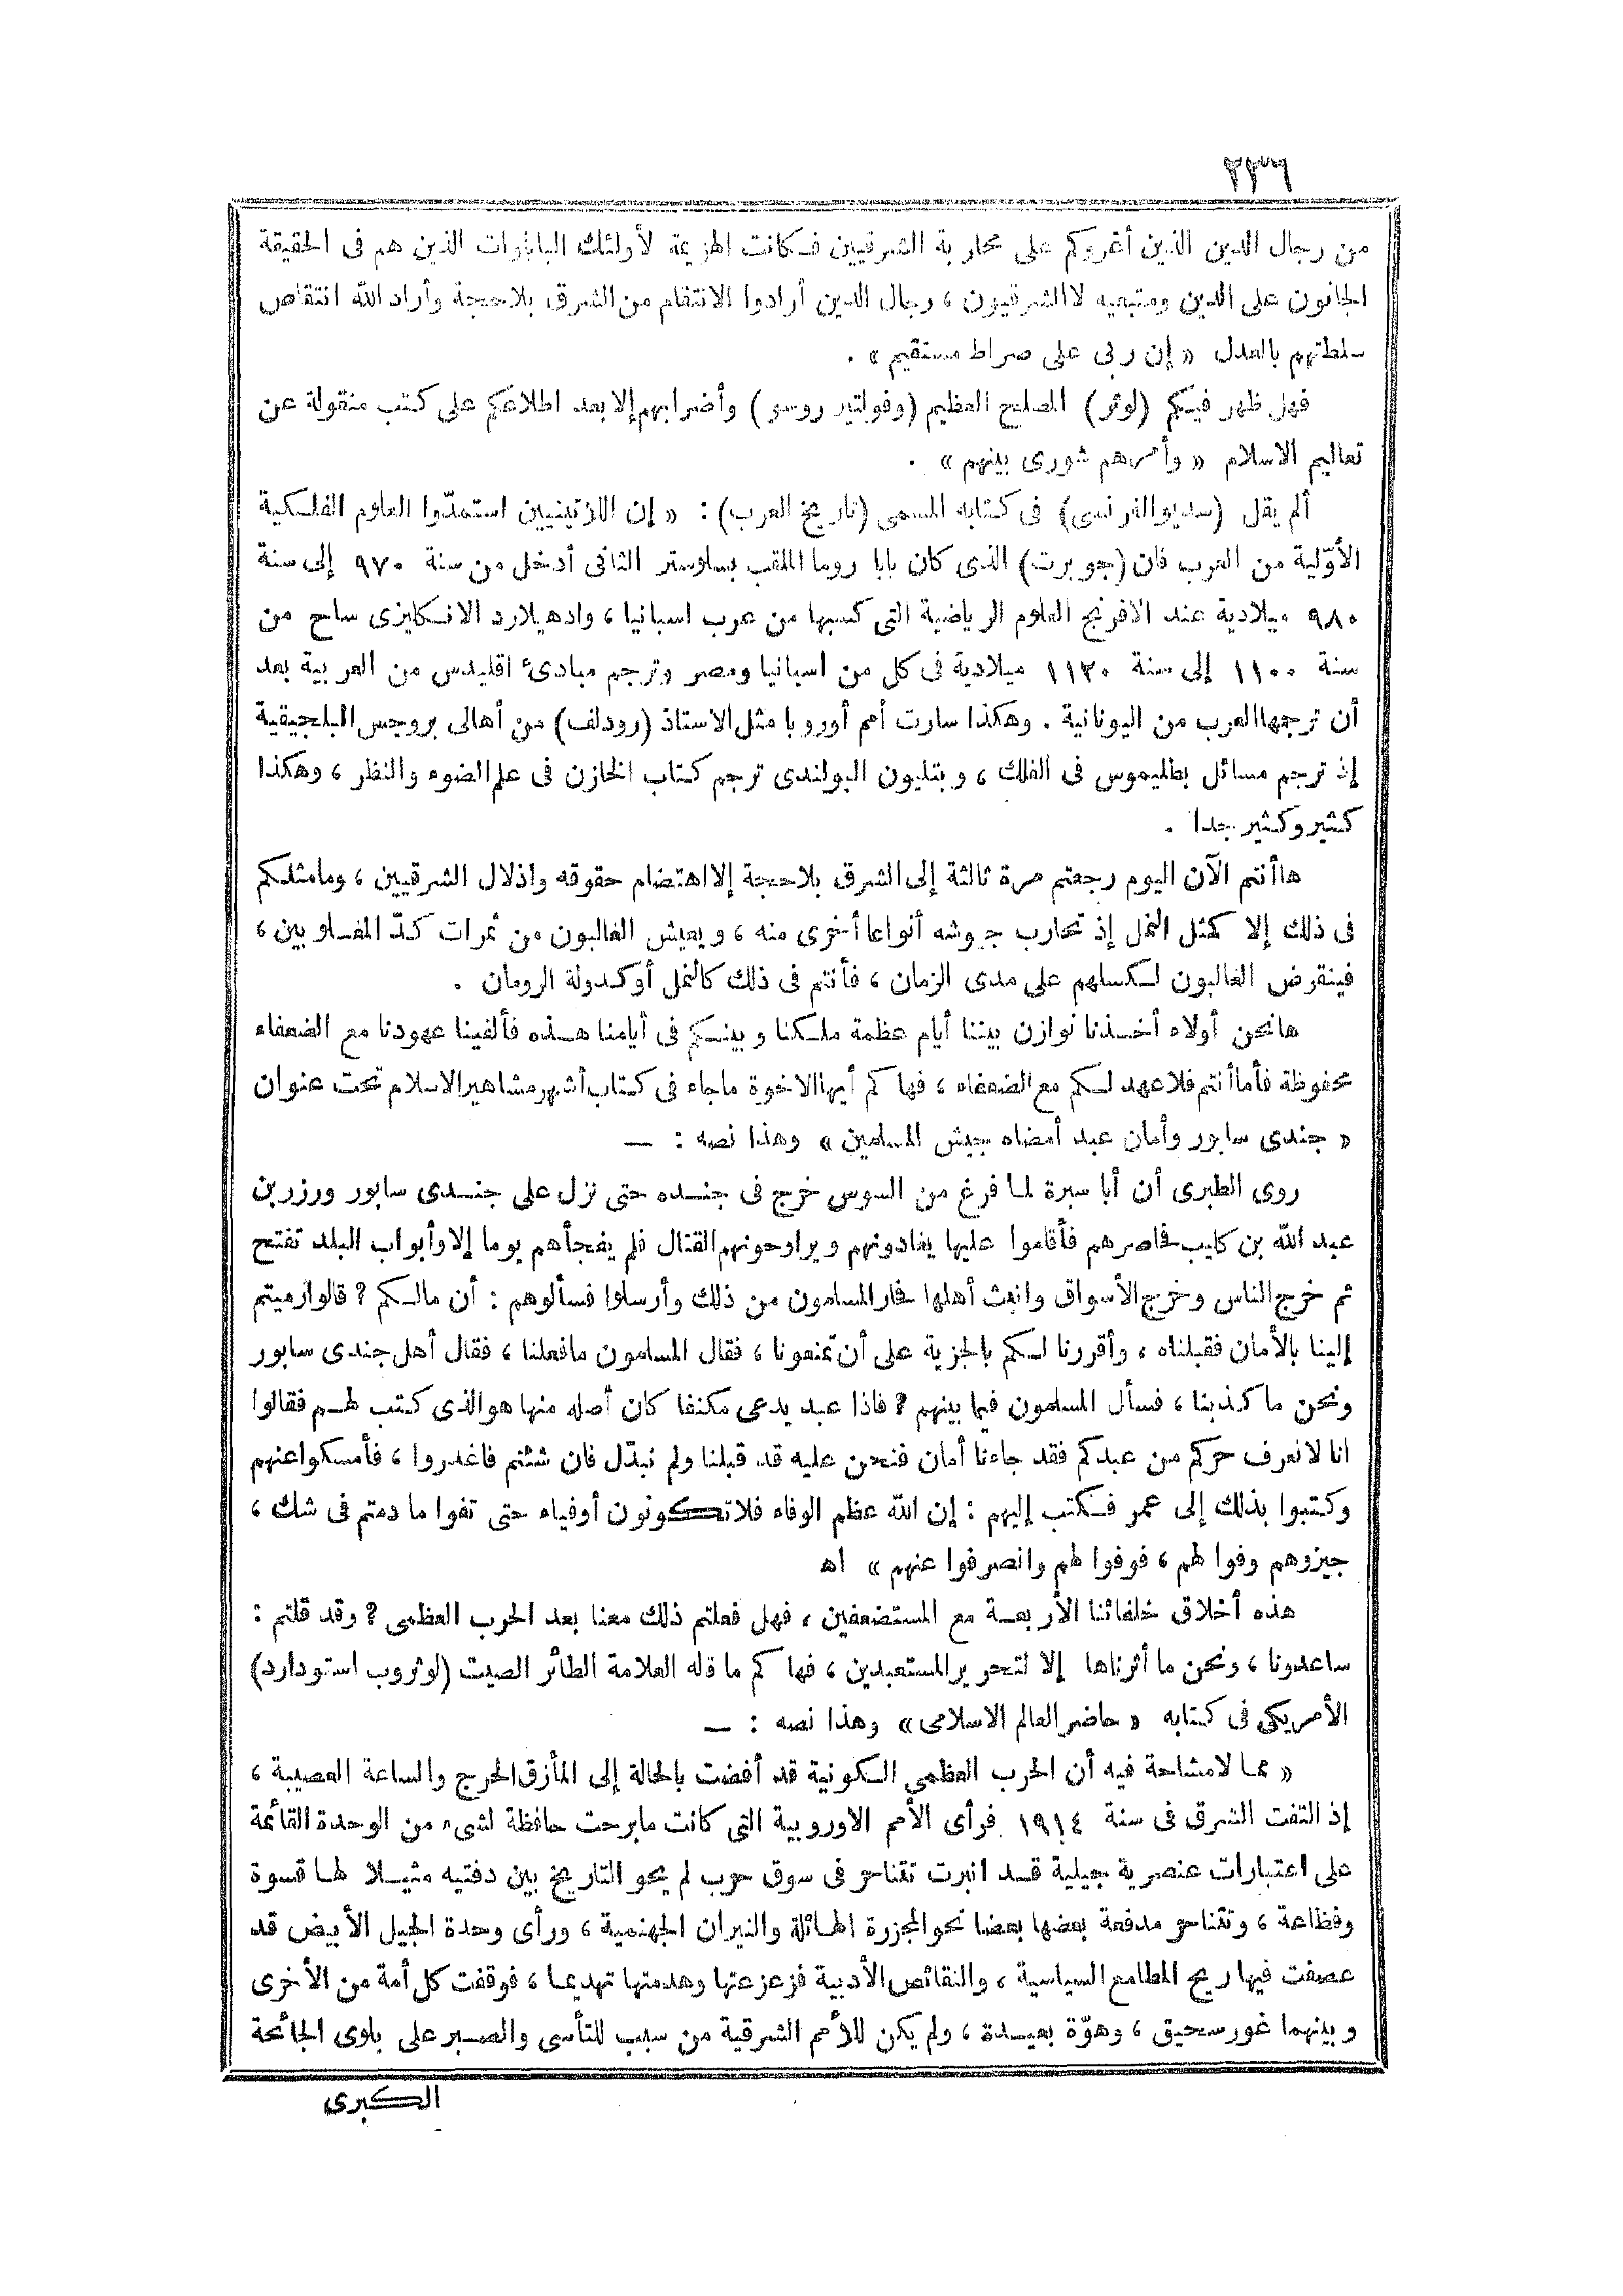 ٢٣٦
من رجال الدين الذين أغروكم على محاربة الشرقيين فكانت الهزيمة لأولئك البابوات الذين هم فى الحقيقة
الجانون على الدين ومتبعيه لا الشرقيون ، رجال الدين أرادوا الانتقام من الشرق بلا حجة وأراد الله انتقاص
سلطتهم بالعدل « إن ربى على صراط مستقيم » .
فهل ظهر فيكم (لوثر) المصلح العظيم (وفولتير روسو) وأضرابهم إلا بعد اطلاعكم على كتب منقولة عن
تعاليم الاسلام « وأمرهم شورى بينهم » .
ألم يقل (سديو الفرنسى) فى كتابه المسمى (تاريخ العرب) : « إن اللاتينيين استمدّوا العلوم الفلكية
الأوّلية من العرب فان (جوبرت) الذى كان بابا روما الملقب بسلوستر الثانى أدخل من سنة ٩٧٠ إلى سنة
٩٨٠ ميلادية عند الافرنج العلوم الرياضية التى كسبها من عرب اسبانيا ، وادهيلارد الانكليزى ساح من
سنة ١١٠٠ إلى سنة ١١٢٠ ميلادية فى كل من اسبانيا ومصر وترجم مبادئ اقليدس من العربية بعد
أن ترجمها العرب من اليونانية . وهكذا سارت أمم أوروبا مثل الاستاذ (رودلف) من أهالى بروجس البلجيقية
إذ ترجم مسائل بطليموس فى الفلك ، وبتليون البولندى ترجم كتاب الخازن فى علم الضوء والنظر ، وهكذا
كثير وكثير جدا .
ها أنتم الآن اليوم رجعتم مرة ثالثة إلى الشرق بلا حجة إلا اهتضام حقوقه واذلال الشرقيين ، وما مثلكم
فى ذلك إلا كمثل النمل إذ تحارب جيوشه أنواعا أخرى منه ، ويعيش الغالبون من ثمرات كدّ المغلوبين ،
فينقرض الغالبون لكسلهم على مدى الزمان ، فأنتم فى ذلك كالنمل أو كدولة الرومان .
ها نحن أولاء أخذنا نوازن بيننا أيام عظمة ملكنا وبينكم فى أيامنا هذه فألفينا عهودنا مع الضعفاء
محفوظة فأما أنتم فلا عهد لكم مع الضعفاء ، فها كم أيها الاخوة ما جاء فى كتاب أشهر مشاهير الاسلام تحت عنوان
« جندى سابور وأمان عبد أمضاه جيش المسلمين » وهذا نصه : —
روى الطبرى أن أبا سبرة لما فرغ من السوس خرج فى جنده حتى نزل على جندى سابور وزر بن
عبد الله بن كليب فحاصرهم فأقاموا عليها يغادونهم ويراوحونهم القتال فلم يفجأهم يوما إلا وأبواب البلد تفتح
ثم خرج الناس وخرج الأسواق وانبث أهلها فحار المسلمون من ذلك وأرسلوا فسألوهم : أن مالكم ? قالوا رميتم
إلينا بالأمان فقبلناه ، وأقررنا لكم بالجزية على أن تمنعونا ، فقال المسلمون ما فعلنا ، فقال أهل جندى سابور
ونحن ما كذبنا ، فسأل المسلمون فيما بينهم ? فاذا عبد يدعى مكنفا كان أصله منها هو الذى كتب لهم فقالوا
انا لا نعرف حركم من عبدكم فقد جاءنا أمان فنحن عليه قد قبلنا ولم نبدّل فان شئتم فاغدروا ، فأمسكوا عنهم
وكتبوا بذلك إلى عمر فكتب إليهم : إن الله عظم الوفاء فلا تكونون أوفياء حتى تفوا ما دمتم فى شك ،
جيزوهم وفوا لهم ، فوفوا لهم وانصرفوا عنهم » اهـ
هذه أخلاق خلفائنا الأربعة مع المستضعفين ، فهل فعلتم ذلك معنا بعد الحرب العظمى ? وقد قلتم :
ساعدونا ، ونحن ما أثرناها إلا لتحرير المستعبدين ، فها كم ما قاله العلامة الطائر الصيت (لوثروب استودارد)
الأمريكى فى كتابه « حاضر العالم الاسلامى » وهذا نصه : —
« مما لا مشاحة فيه أن الحرب العظمى الكونية قد أفضت بالحالة إلى المأزق الحرج والساعة العصيبة ،
إذ التفت الشرق فى سنة ١٩١٤ فرأى الأمم الاوروبية التى كانت ما برحت حافظة لشىء من الوحدة القائمة
على اعتبارات عنصرية جيلية قد انبرت تتناحر فى سوق حرب لم يحو التاريخ بين دفتيه مثيلا لها قسوة
وفظاعة ، وتتناحر مدفعة بعضها بعضا نحو المجزرة الهائلة والنيران الجهنمية ، ورأى وحدة الجيل الأبيض قد
عصفت فيها ريح المطامع السياسية ، والنقائص الأدبية فزعزعتها وهدمتها تهديما ، فوقفت كل أمة من الأخرى
وبينهما غور سحيق ، وهوّة بعيدة ، ولم يكن للأمم الشرقية من سبب للتأسى والصبر على بلوى الجائحة
الكبرى